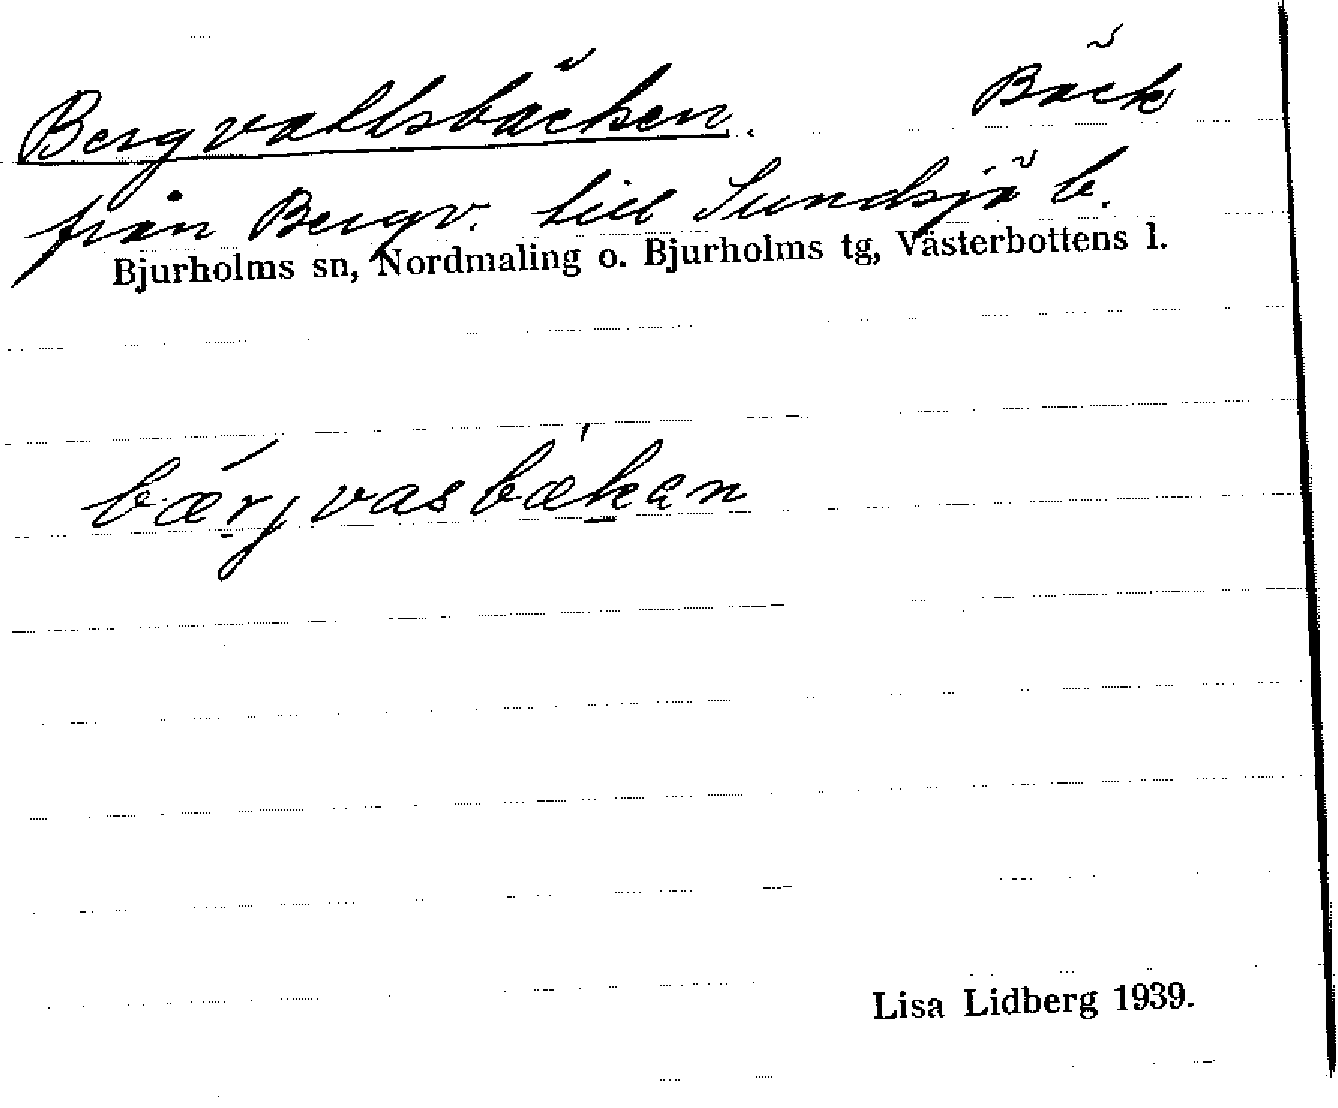 Bergvallsbäcken. Bäck
från Bergv. till Sundsjö b.
Bjurholms sn, Nordmaling o. Bjurholms tg, Västerbottens l.
bærjvasbækan
Lisa Lidberg 1939.